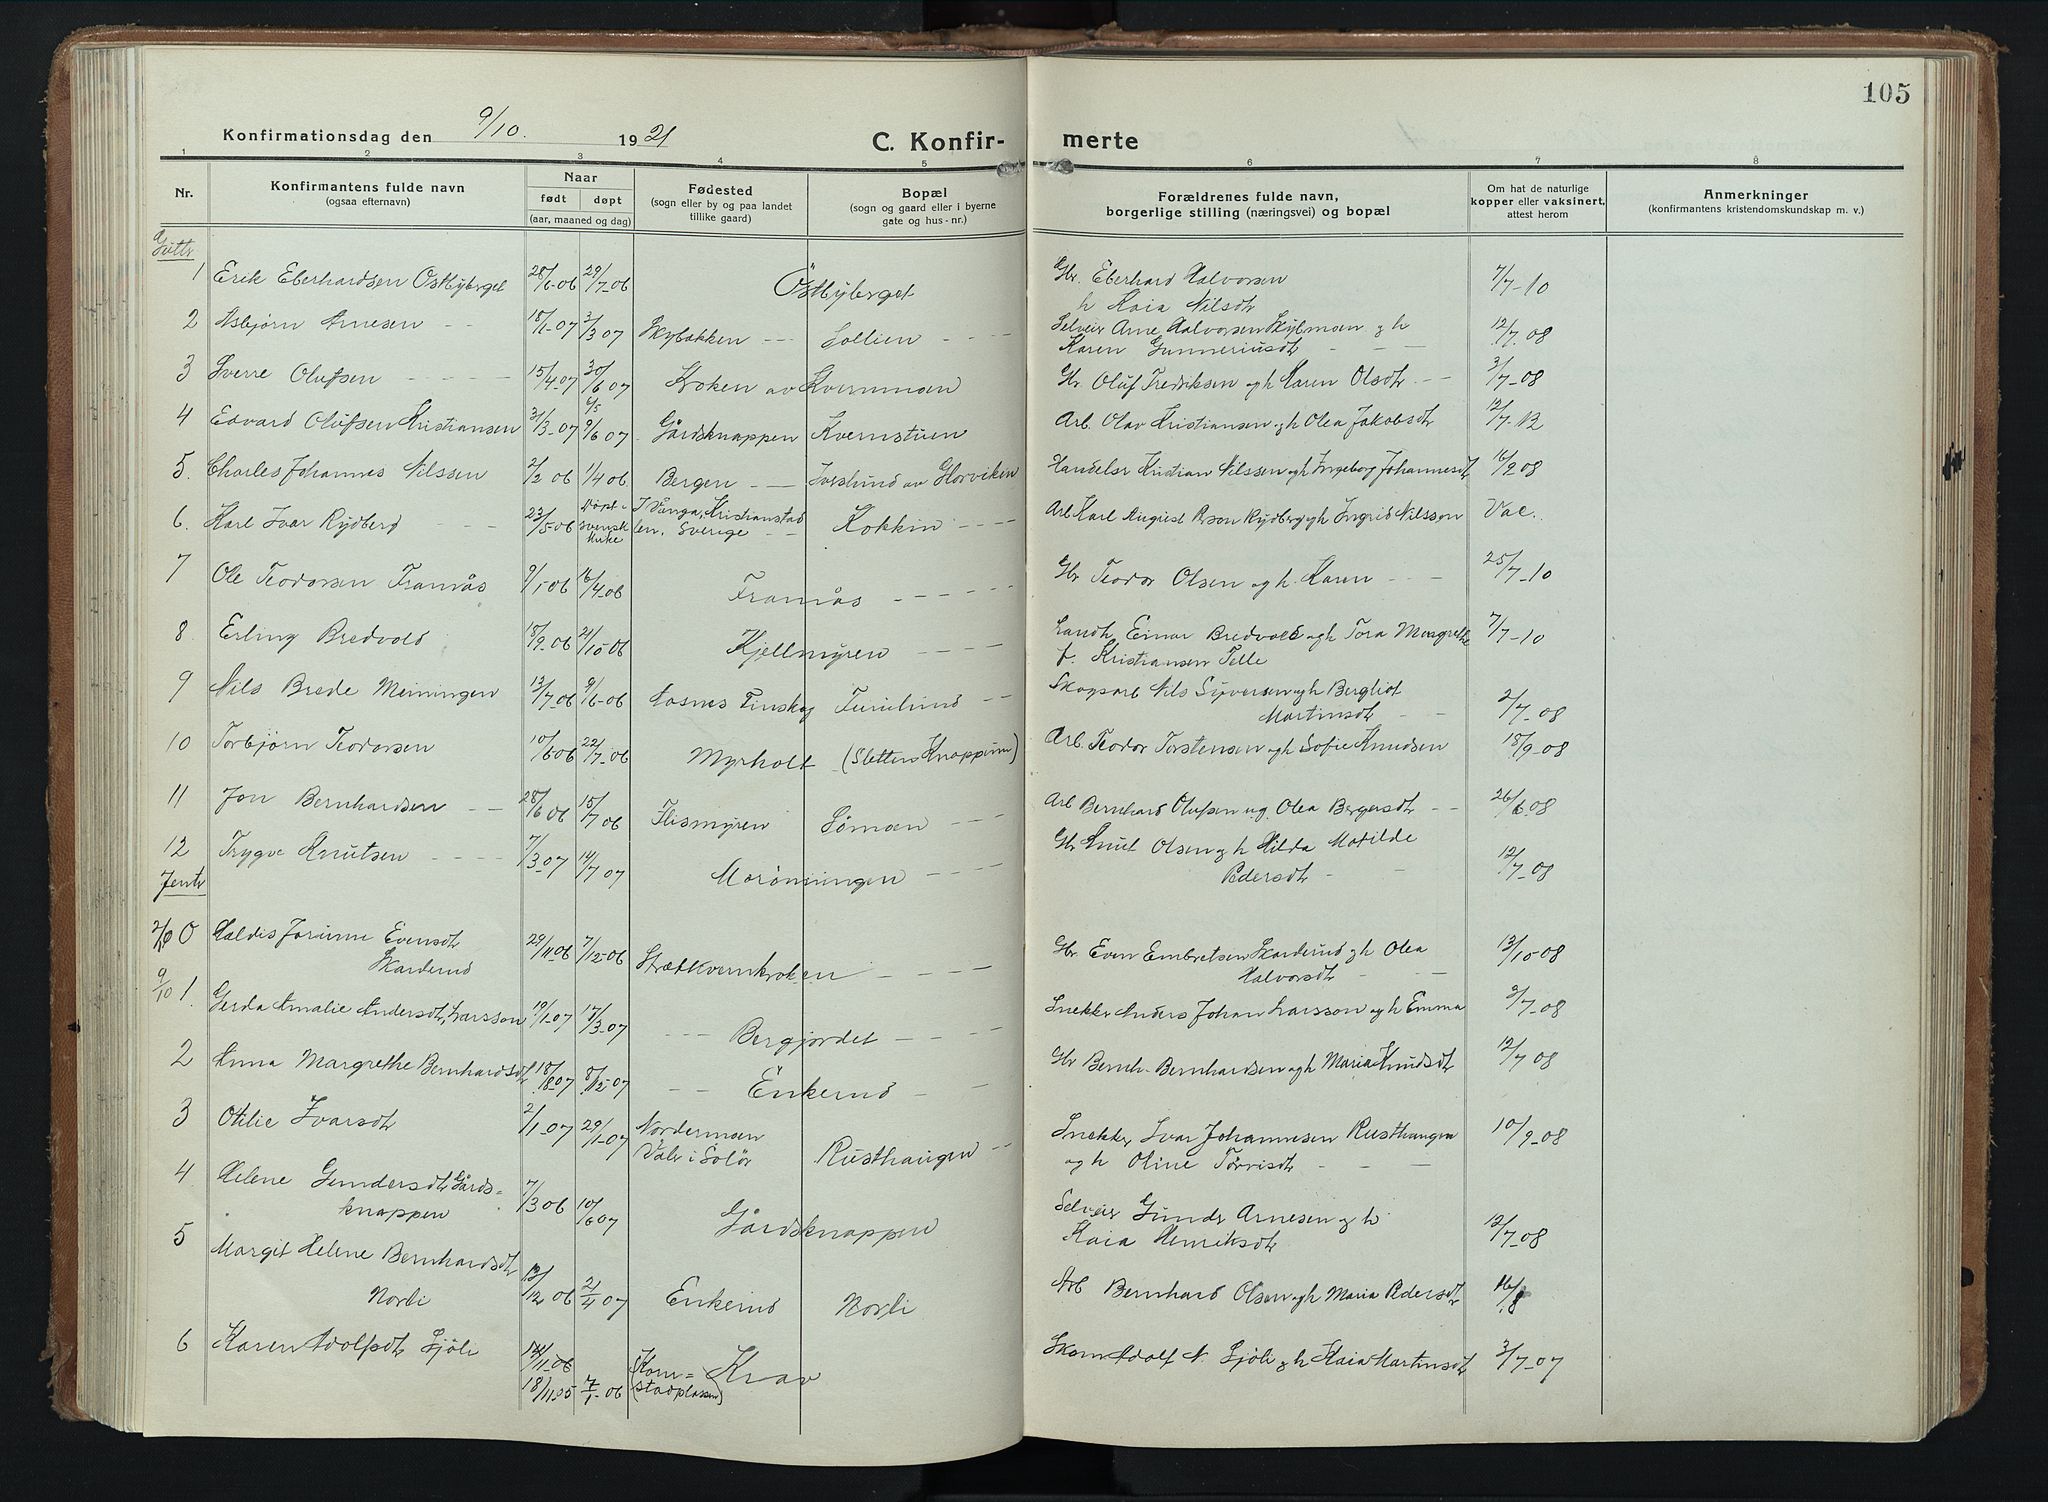 105
Konfirmationsdag den 9/10. 1921 C. Konfir- merte
1 2 3 4 5 6 7 8
Nr. Konfirmantens fulde navn (ogsaa efternavn) Naar født døpt (aar, maaned og dag) Fødested (sogn eller by og paa landet tillike gaard) Bopæl (sogn og gaard eller i byerne gate og hus-nr.) Forældrenes fulde navn, borgerlige stilling (næringsvei) og bopæl Om hat de naturlige kopper eller vaksinert, attest herom Anmerkninger (konfirmantens kristendomskundskap m. v.)
Gutter
1 Erik Eberhardsen Östbyberget 28/6-06 29/7-06 Östbyberget Gbr. Eberhard Halvorsen 7/7-10
h Kaia Nilsdtr
2 Asbjørn Arnesen 18/1-07 3/3 07 Skybakken Sollien Selveier Arne Halvorsen Skybmoen og h 12/7.08
Karen Gunneriusdtr
3 Sverre Olufsen 15/4.07 30/6 07 Kroken av Kvernmoen Gbr Oluf Fredriksen og h Karen Olsdtr 3/7-08
6/5
4 Edvard Olufsen Kristiansen 31/3-07 9/6 07 Gårdsknappen Kvernstuen Arb. Olav Kristiansen og h Olea Jakobsdtr 12/7-12
5. Charles Johannes Nilssen 2/2 06 1/4 06 Bergen Ivarslund av Horviken Handelsr Kristian Nilssen og h Ingeborg Johannesdtr 16/9 08
6. Karl Ivar Rydberg 23/5-06 Døpt i svensk kirke I Vånga, Kristianstad len, Sverige Kokkin Arb Karl August Pson Rydberg og h Ingrid Nilsson Vac.
7 Ole Teodorsen Framås 9/1 06 16/4-06 Framås Gbr Teodor Olsen og h. Karen 25/7-10
8 Erling Bredvold 18/9-06 21/10-06 Kjellmyren Landh. Einar Bredvold og h Tora Margrethe 7/7-10
f. Kristiansen Telle
9 Nils Brede Meiningen 13/7-06 9/6-06 Hasnes Finskog Furulund Skogsarb Nils Syversen og h Bergliot 2/7-08
Martinsdtr
10 Torbjørn Teodorsen 10/6 06 22/7-06 Myrholt (Sletten Knappum) Arb. Teodor Torstensen og h Sofie Knudsen 18/9-08
11 Jon Bernhardsen 28/6 06 15/7 06 Flismyren Sømoen Arb Bernhard Olufsen og Olea Bergersdtr 26/6 08
12 Trygve Knutsen 7/3-07 14/7 07 Morønningen Gbr Knut Olsen og h Hilda Matilde 12/7-08
Pedersdtr
Jenter
2/10 0 Haldis Jorunne Evensdtr 29/11 06 7/12-06 Strætkvernkroken Gbr Even Embretsen Skarderud og h Olea 13/10-08
Skarderud Halvorsdtr
9/10 1. Gerda Amalie Andersdtr, Larsson 19/1-07 17/3-07 Bergjordet Snekker Anders Johan Larsson og h Emma 3/7-08
2 Anna Margrethe Bernhardsdtr 18/18-07 8/12-07 Enkerud Gbr Bernh. Bernhardsen og h Maria Knudsdtr 12/7 08
3 Otilie Ivarsdtr 2/1-07 29/1-07 Nordermoen Våler i Solör Rusthaugen Snekker Ivar Johannesen Rusthaugen 10/9-08
og h Oline Tørrisdtr
4 Helene Gundersdtr Gårdsknappen 7/3 06 10/6 07 Gårdsknappen Selveier Gunder Arnesen og h 12/7-08
Kaia Henriksdtr
5 Margit Helene Bernhardsdtr
Norli 13/12 06 2/4 07 Enkerud Norli Arb Bernhard Olsen og h Maria Pedersdtr 16/8
6 Karen Adolfsdtr Sjöli 14/11-06 Skom Adolf N. Sjöli og h Kaia Martinsdtr 3/7-07
18/11.05 7/1-06 (Kornstadplassen) Krav